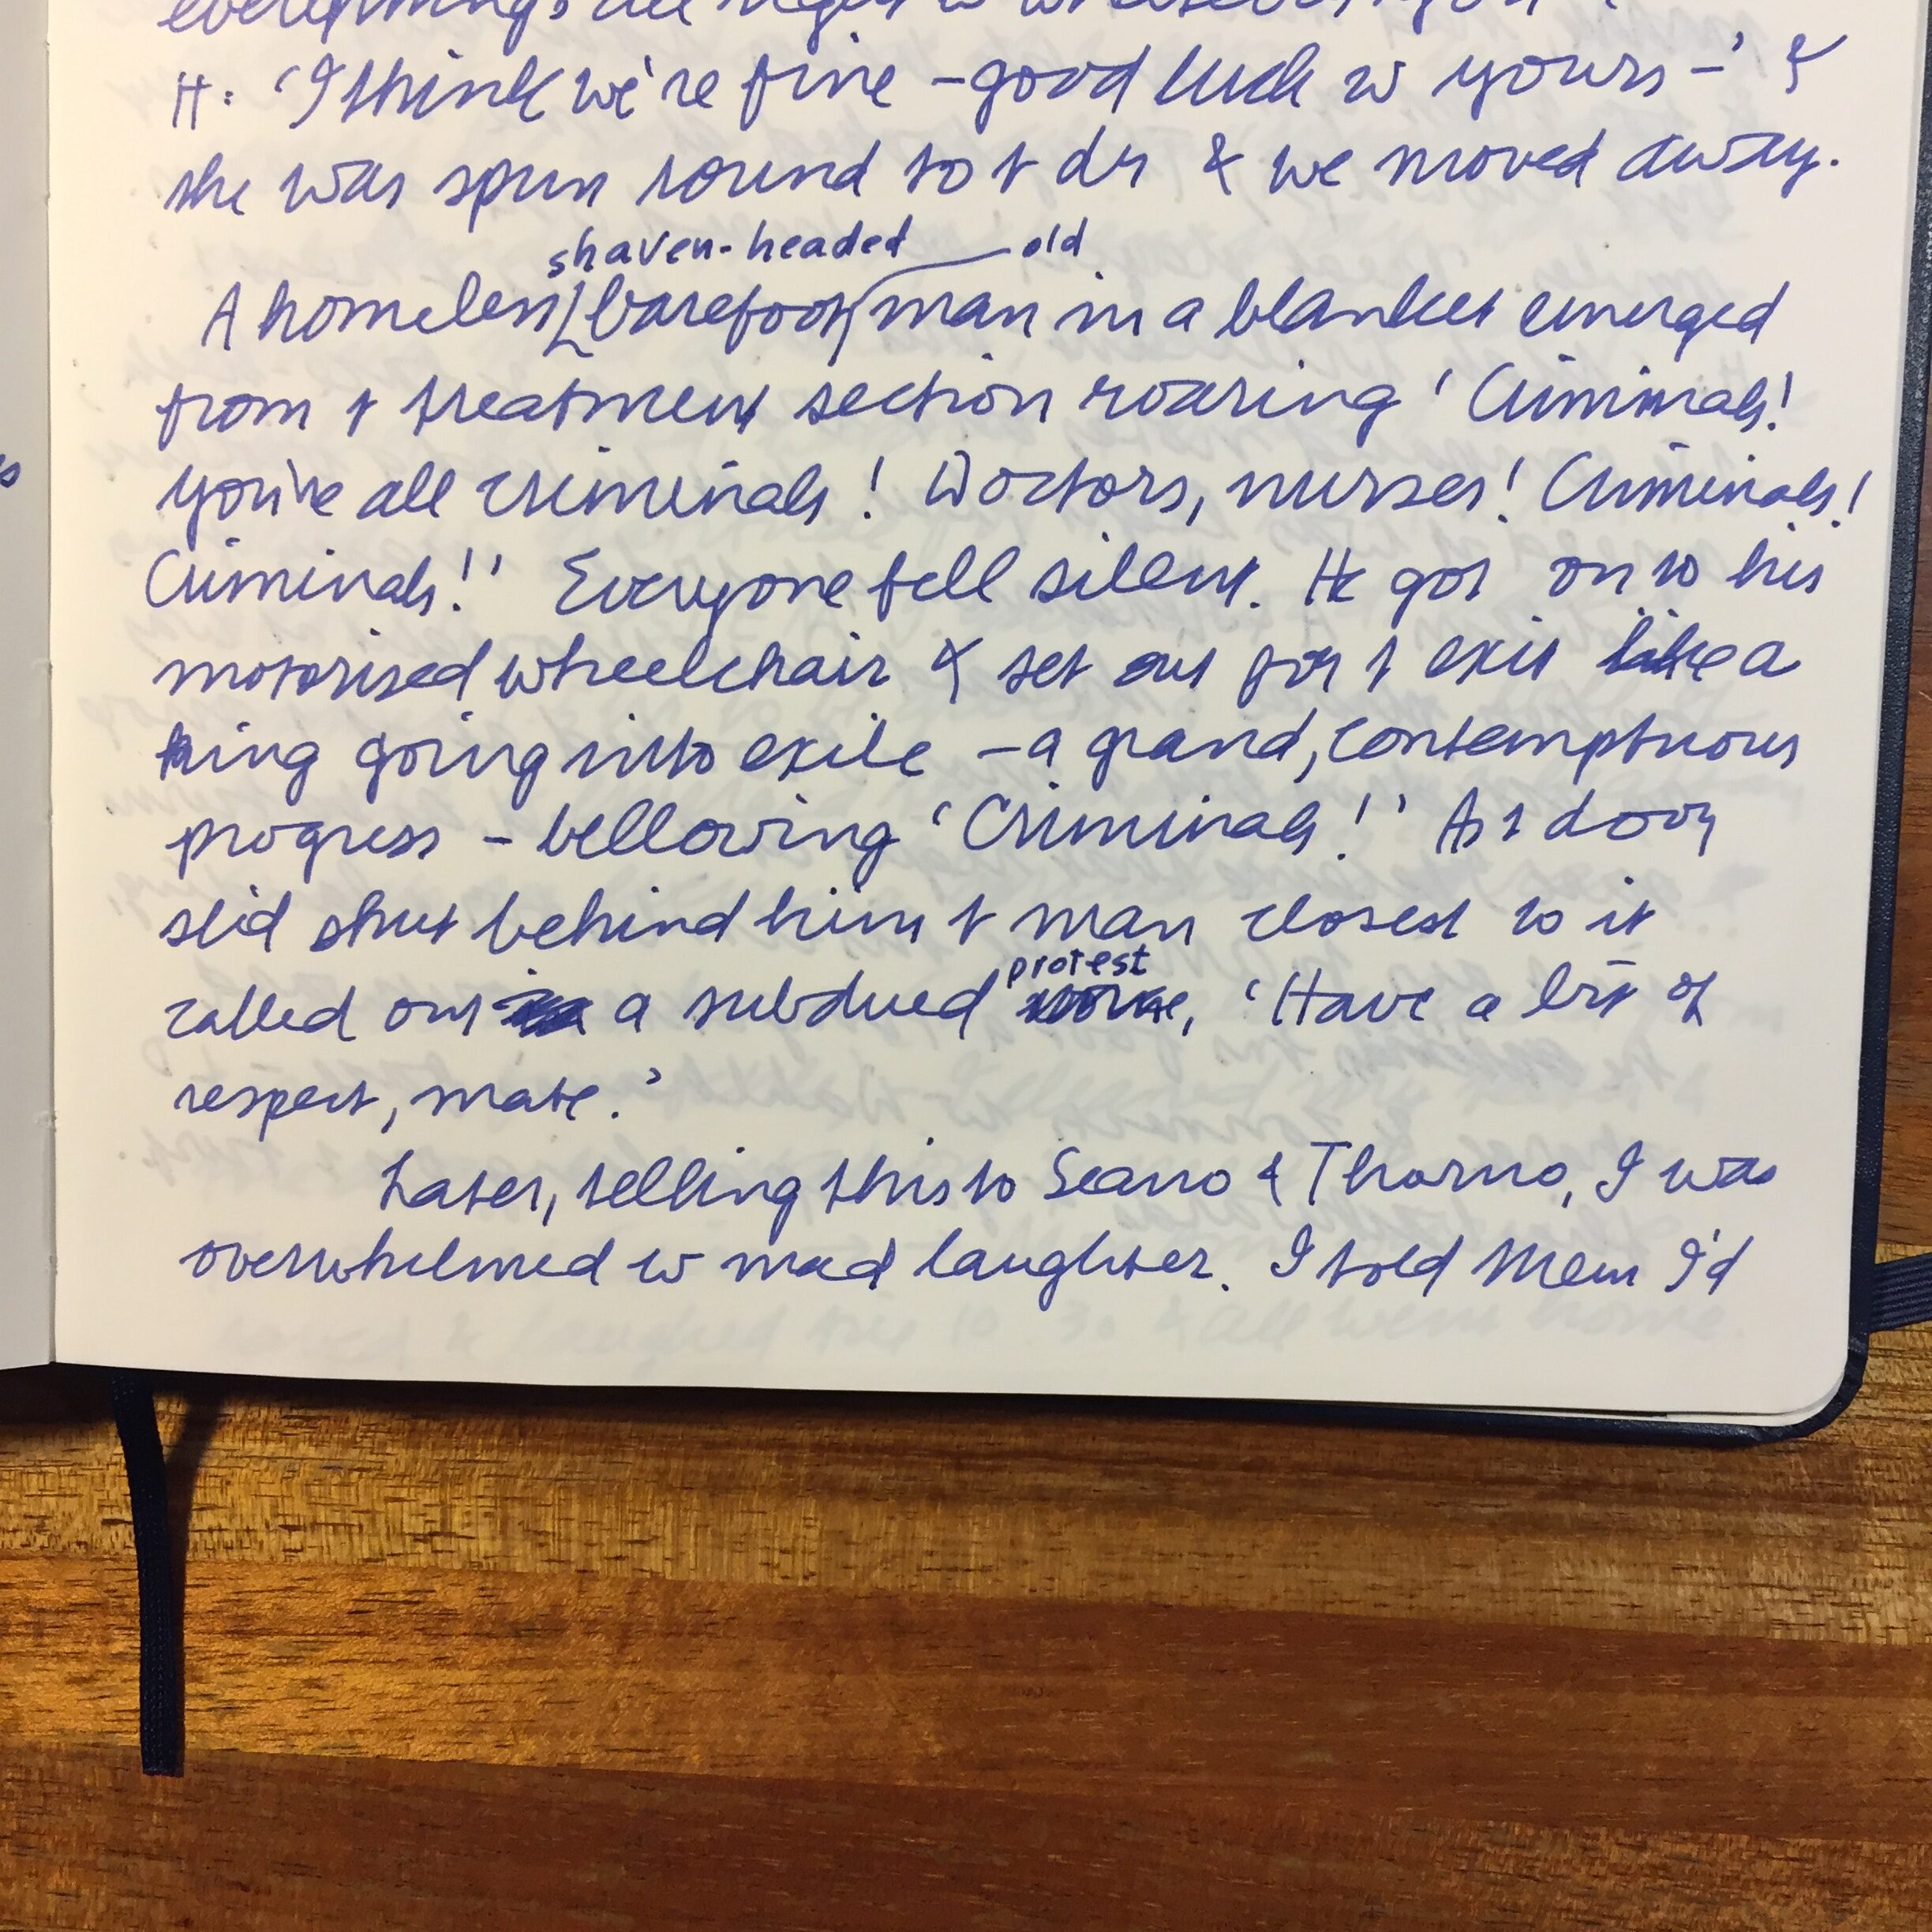 H: 'I think we're fine – good luck w yours –' &
she was spun round to t dr & we moved away.
shaven-headed old
A homeless barefoot man in a blanket emerged
from t treatment section roaring 'Criminals!
You're all criminals! Doctors, nurses! Criminals!
Criminals!' Everyone fell silent. He got on to his
motorised wheelchair & set out for t exit like a
king going into exile – a grand, contemptuous
progress – bellowing 'Criminals!' As t door
slid shut behind him t man closest to it
protest
called out a subdued , 'Have a bit of
respect, mate.'
Later, telling this to Seano & Thorno, I was
overwhelmed w mad laughter. I told Mem I'd